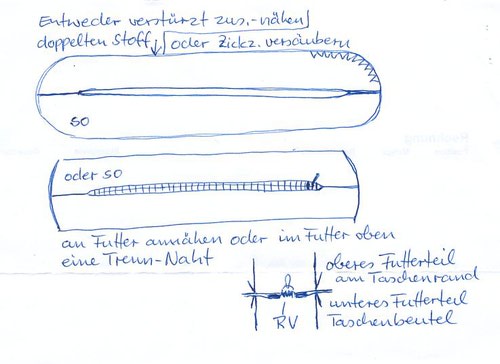 Entweder verstürzt zus.-nähen
doppelten Stoff oder Zickz. versäubern
so
oder so
an Futter annähen oder im Futter oben
eine Trenn-Naht
oberes Futterteil
am Taschenrand
unteres Futterteil
Taschenbeutel
RV